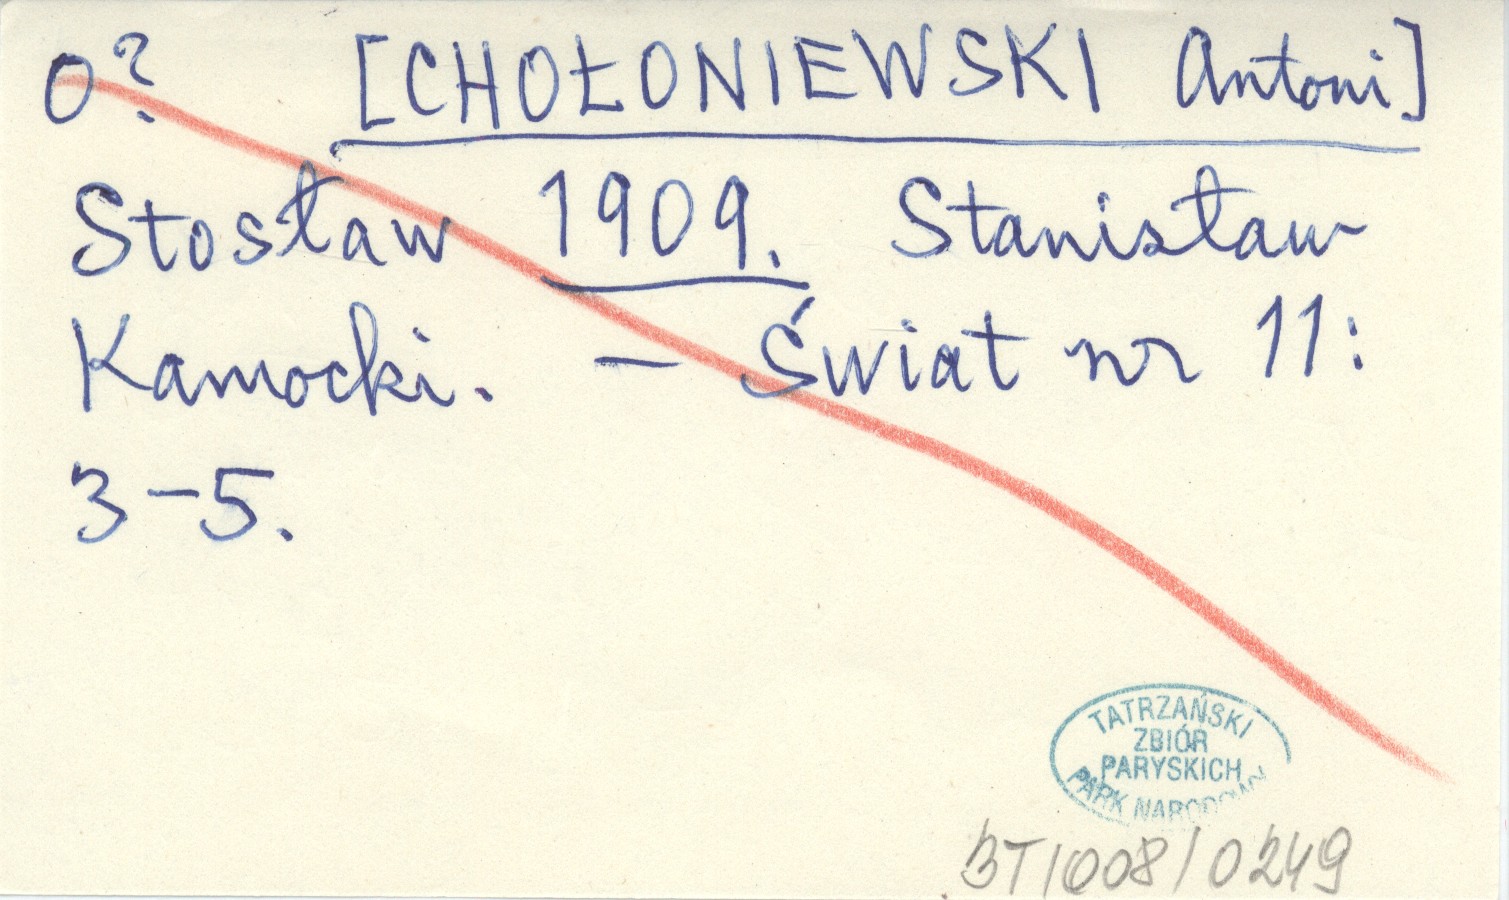 O? [CHOŁONIEWSKI Antoni]
Stosław 1909. Stanisław
Kamocki. — Świat nr 11:
3-5.
TATRZAŃSKI
ZBIÓR
PARYSKICH
PARK NARODOWY
BT/008/0249